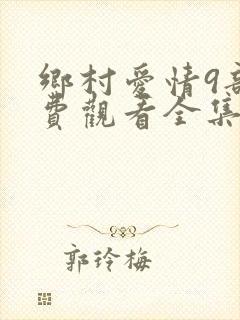 鄉村愛情9部
費觀看全集
郭玲梅